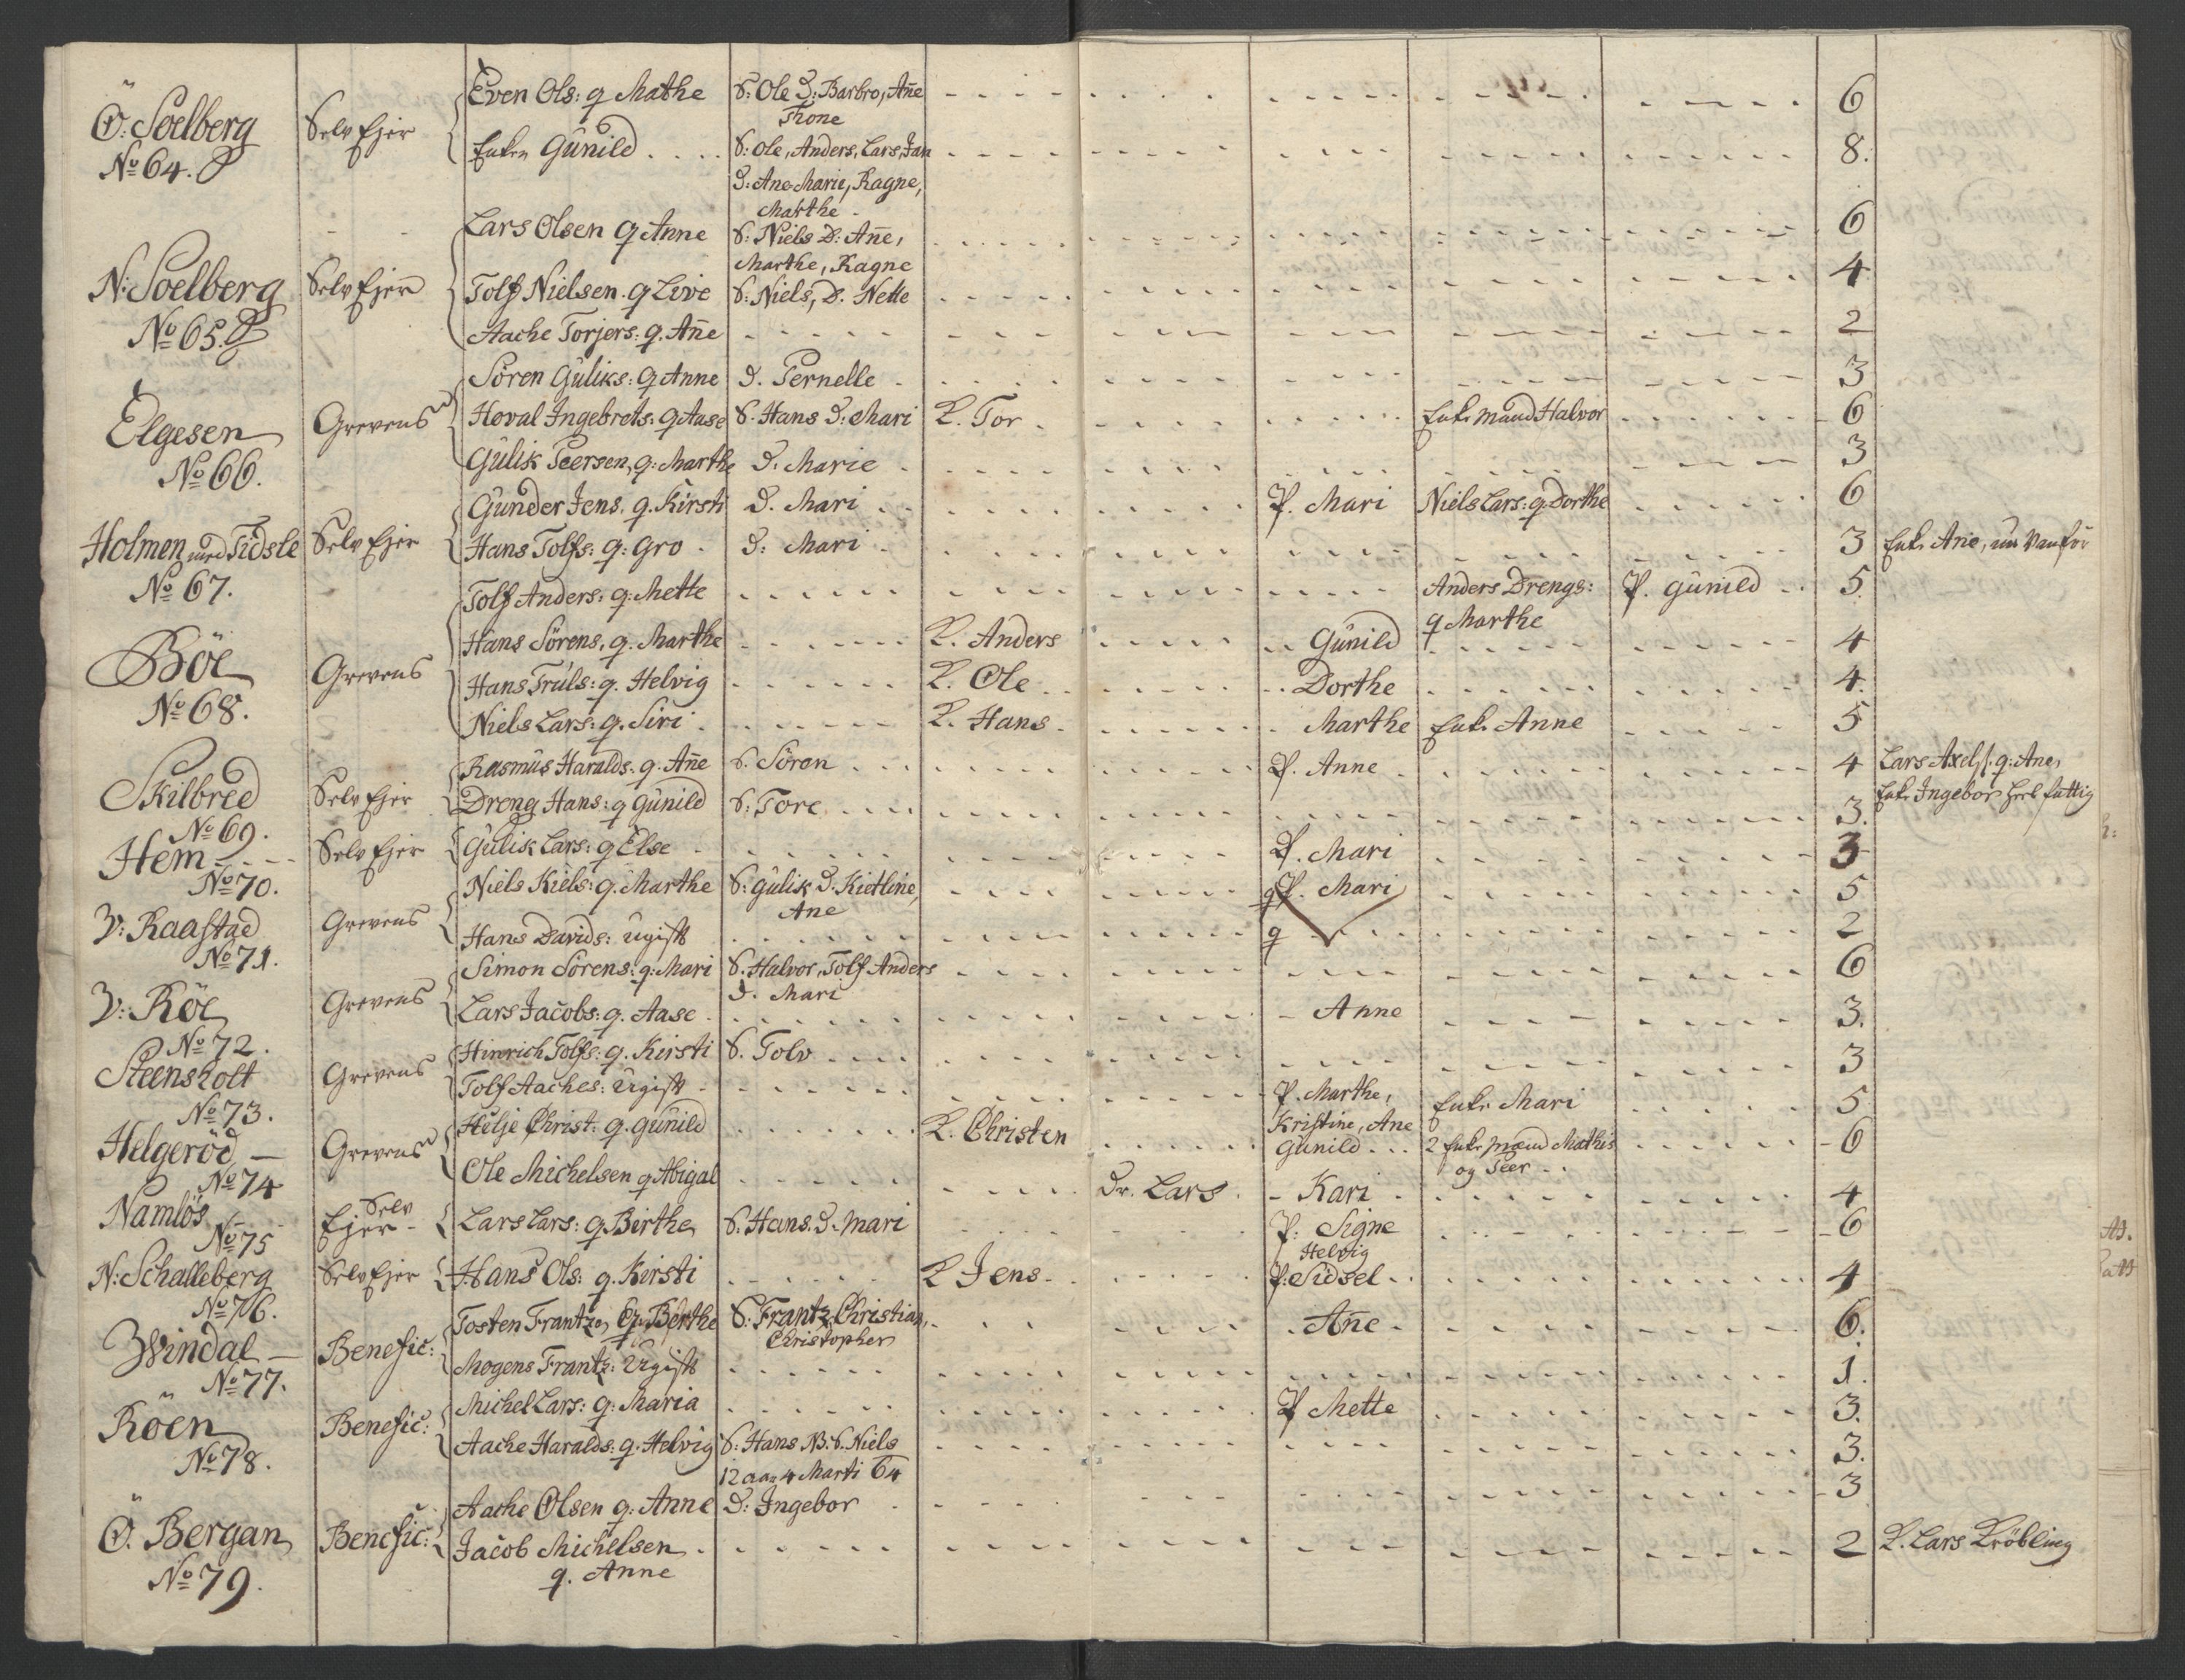 Ö: Soelberg
No 64.
Selv Ejer
Even Ols: q Mathe
S: Ole D: Barbro, Añe
Thone
6
Enken Gunild
S: Ole, Anders, Lars, Jan
D: Ane Marie, Ragne,
Marthe
8.
N: Soelberg
No 65.
Selv Ejer
Lars Olsen q Anne
S: Niels D: Añe,
Marthe, Ragne
6
Tolf Nielsen q Live
S: Niels, D. Nette
4
Aache Torjers: q. Añe
2
Elgesen
No 66.
Grevens
Sören Guliks: q Anne
D. Pernelle
3
Hoval Ingebrets: q Aase
S. Hans D: Mari
K. Tor
Enke mand Halvor
6
Gulik Peersen, q: Marthe
D. Marie
3
Holmen med Tidsle
No 67.
Selv Ejer
Gunder Jens. q. Kirsti
D. Mari
P. Mari
Niels Lars: q. Dorthe
6
Hans Tolfs: q: Gro
D: Mari
3
Enke Ane, Vanför
Böe
No 68.
Grevens
Tolf Anders: q: Mette
Anders Drengs:
q Marthe
P. Gunild
5
Hans Sörens. q. Marthe
K. Anders
Gunild
4
Hans Truls: q. Helvig
K. Ole
Dorthe
4.
Niels Lars: q. Siri
K. Hans
Marthe
Enke Anne
5
Skilbred
No 69.
Selv Ejer
Rasmus Haralds: q. Añe
S. Sören
P. Anne
4
Lars Axels: q: Ane,
Dreng Hans: q Gunild
S: Tore
3.
Enke Ingebor fattig
Hem
No 70.
Selv Ejer
Gulik Lars: q Else
P. Mari
3
V: Raastad
No 71.
Grevens
Niels Kiels: q. Marthe
S: Gulik D. Kietline,
Ane
q P. Mari
5
Hans Davids: Ugift
q
2
V: Röe
No 72.
Grevens
Simon Sörens: q: Mari
S. Halvor, Tolf Anders
D. Mari
6
Lars Jacobs: q. Aase
Anne
3.
Steensholt
No 73.
Grevens
Hinrich Tolfs: q. Kirsti
S. Tolv
3
Tolf Aaches: Ugift
P. Marthe,
Kristine, Ane
Enke Mari
5
Helgeröd
No 74
Grevens
Helje Christ: q. Gunild
K. Christen
Gunild
2 Enke mænd Mathis
og Peer
6
Ole Michelsen q Abigal
Dr. Lars
Kari
4
Namlös
No 75
Selv
Ejer
Lars Lars: q. Birthe
S: Hans. D. Mari
P: Signe
Helvig
6
N: Schalleberg
No 76.
Selv Ejer
Hans Ols: q. Kirsti
K Jens
P: Sidsel
4
Windal
No 77.
Benefic:
Tosten Frantze, q. Berthe
S: Frantz, Christian,
Christopher
Añe
6.
Mogens Frantz: Ugift
1.
Röen
No 78.
Benefic:
Michel Lars: q: Maria
P Mette
3.
Aache Haralds: q. Helvig
S: Hans NB. S. Niels
12 aar 4 Marti 64
3.
Ö. Bergan
No 79.
Benefic:
Aache Olsen q: Anne
D: Ingebor
3
Jacob Michelsen
q. Anne
2
K. Lars Kröbling